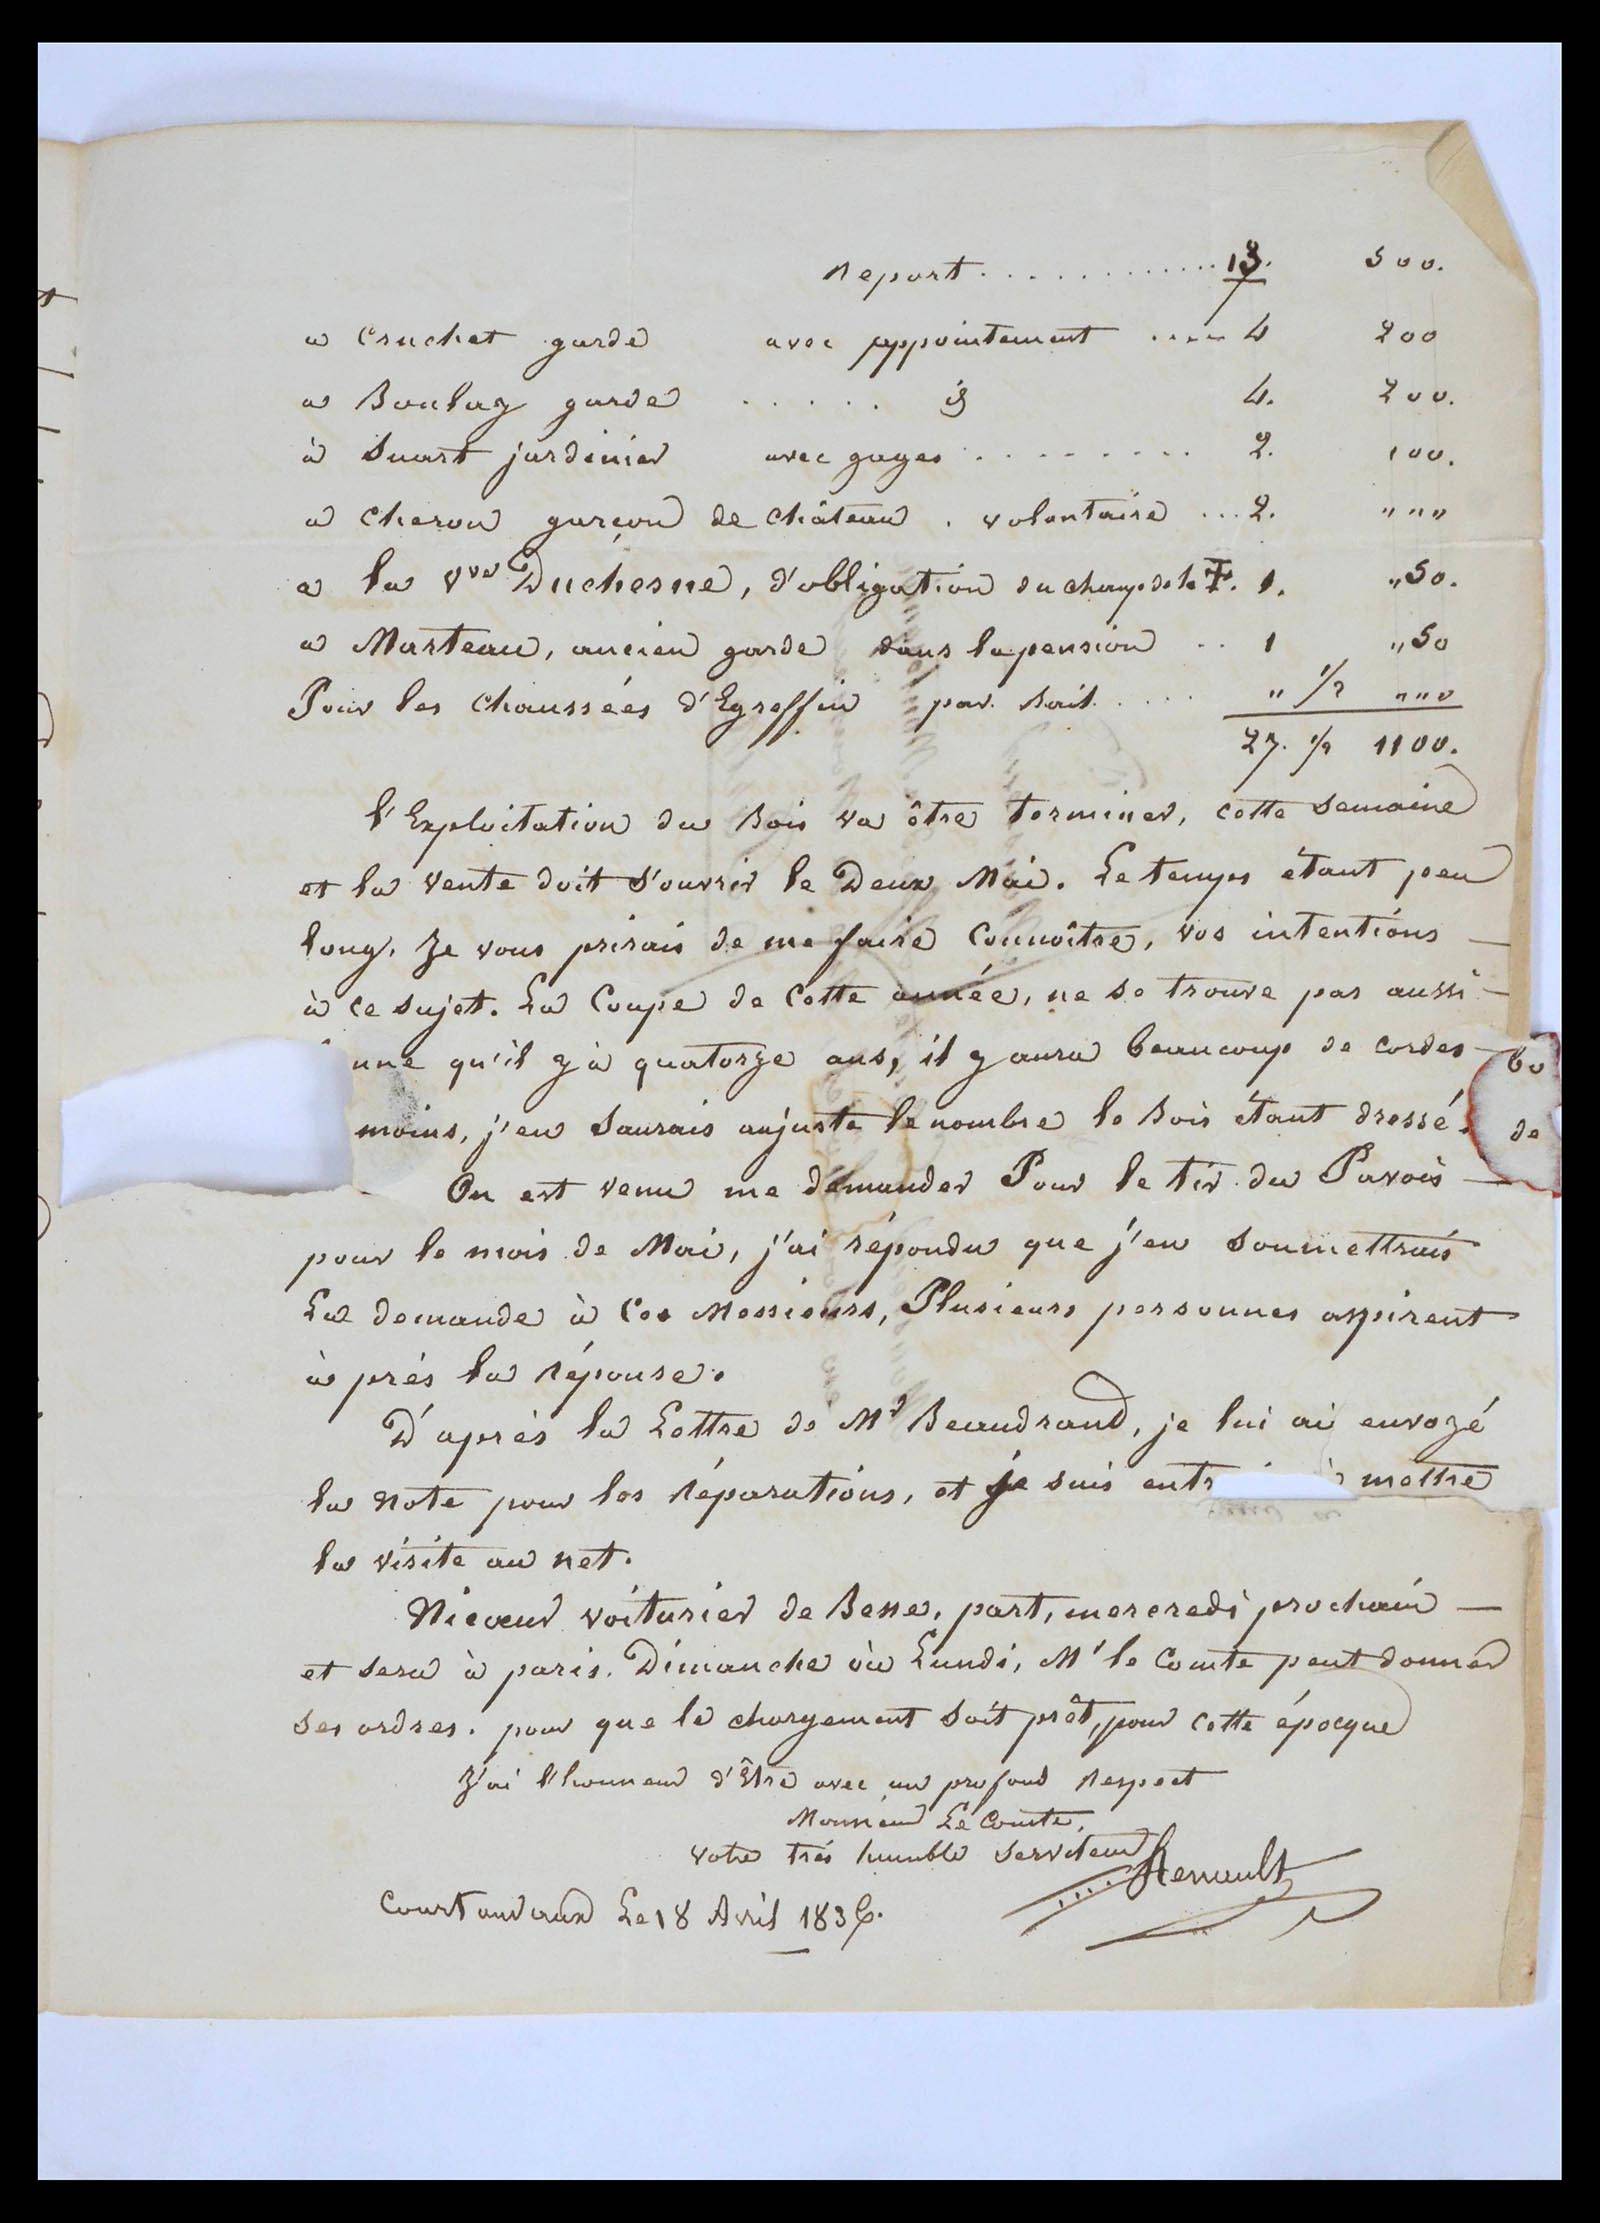 Report ............ 13. 500.
a Cruchet garde avec appointement .... 4 200
a Boulay garde ..... id 4. 200.
à Suart jardinier avec gages ........ 2. 100.
a cheron garçon de château . volontaire ... 2. """
a la Vve Duchesne, d'obligation du champ de la 1. "50.
a Marteau, ancien garde dans la pension .. 1 "50
Pour les chaussées d'Egreffin par bail .... " 1/2 """
27. 1/2 1100.
l'Exploitation du Bois va être terminer, cette semaine
et la vente doit s'ouvrir le Deux Mai. Le temps étant peu
long. Je vous prirais de me faire Connoître, vos intentions —
à ce sujet. La Coupe de Cette année, ne se trouve pas aussi —
nne qu'il y à quatorze ans, il y aura beaucoup de cordes bo
moins, j'en saurais aujuste le nombre le Bois étant dressé. de
On est venu me demander Pour le tir du Pavois —
pour le mois de Mai, j'ai répondu que j'en soumettrais
La demande à Ces Messieurs, Plusieurs personnes aspirent
à prés la réponse.
D'après la Lettre de Mr Beaudrand, je lui ai envoyé
la note pour les réparations, et je suis entr mettre
la visite au net.
Nicoeur voiturier de Besse, part, mercredi prochain —
et sera à paris. Dimanche où Lundi, Mr le Comte peut donner
ses ordres. pour que le chargement soit prêt, pour cette époque
J'ai l'honneur d'Être avec un profond Respect
Monsieur Le Comte,
votre trés humble serviteur
Renault
Courtanvaux Le 18 Avril 1836.